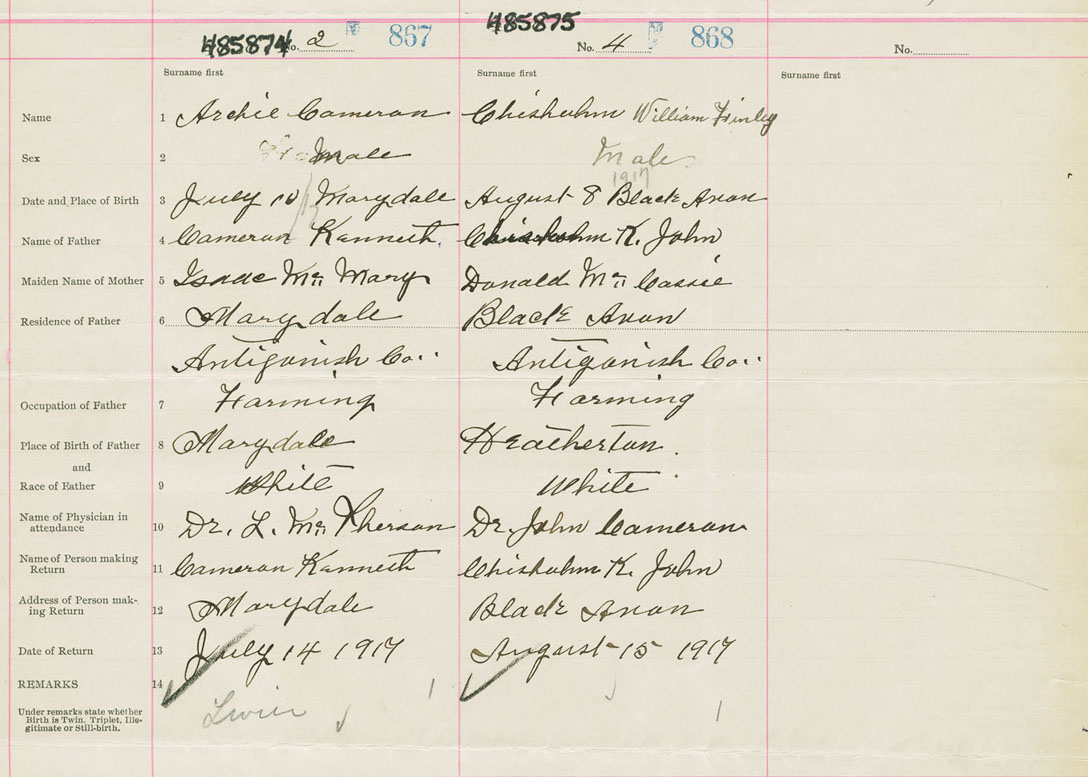 485874 485875
No. 2 867 No. 4 868 No.
Surname first Surname first Surname first
Name 1 Archie Cameron Chisholm William Finley
Sex 2 Male Male
1917
Date and Place of Birth 3 July 10/17 Marydale August 8 Black Avon
Name of Father 4 Cameron Kenneth. Chisholm K. John
Maiden Name of Mother 5 Isaac Mc Mary Donald Mc Cassie
Residence of Father 6 Marydale Black Avon
Antigonish Co.. Antigonish Co..
Occupation of Father 7 Farming Farming
Place of Birth of Father 8 Marydale Heatherton.
and
Race of Father 9 White White
Name of Physician in
attendance 10 Dr. L. Mc Pherson Dr. John Cameron
Name of Person making
Return 11 Cameron Kenneth Chisholm K. John
Address of Person mak-
ing Return 12 Marydale Black Avon
Date of Return 13 July 14 1917 August 15 1917
REMARKS 14 1
Under remarks state whether
Birth is Twin, Triplet, Ille-
gitimate or Still-birth. 1